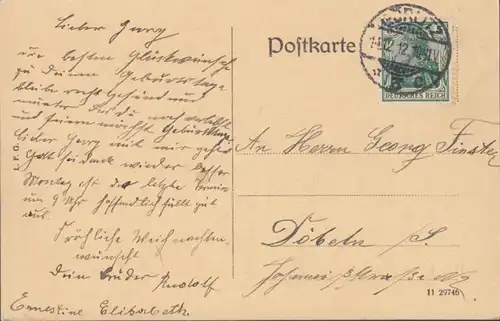 Lieber Georg
die besten Glückwünsche
zu deinem Geburtstage
bleibe recht Gesund und
munter
und feiern möchst Geburtstag
Lieber Georg mit mir geht
Gott sei dank wieder besser
Montag ist der letzte Termin
um 9 Uhr hoffentlich fällt gut
aus
Fröhliche Weihnachten
wünscht
Dein Bruder Rudolf
Ernestine Elisabeth
L.F.G.
Postkarte
GÖRLITZ
12.12
DEUTSCHES REICH
An Herrn Georg Finster
Döbeln i/S.
Johannisstrasse
11 29746